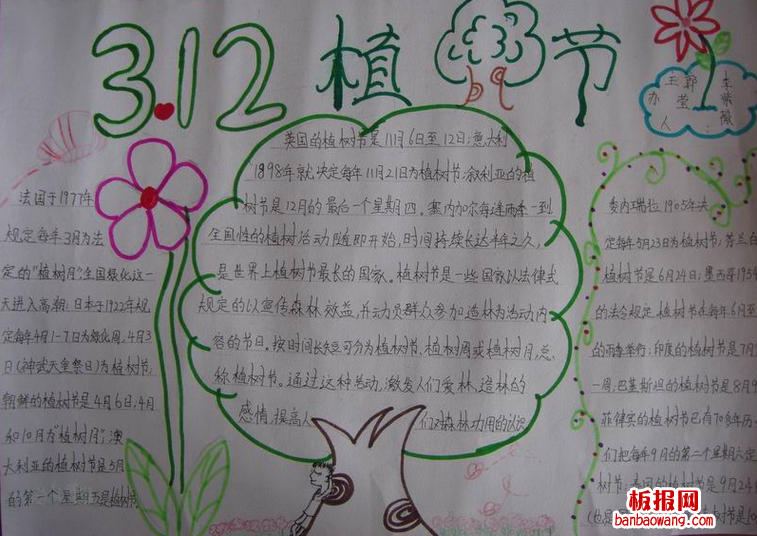 3.12 植树节
主办人:
郭莹
李紫薇
法国于1977年
规定每年3月为法
定的"植树月"全国绿化这一
天进入高潮;日本于1922年规
定每年4月1-7日为绿化周,4月3
日(神武天皇祭日)为植树节;
朝鲜的植树节是4月6日;4月
和10月为"植树月";澳
大利亚的植树节是5月
的第一个星期五是植树节
英国的植树节是11月6日至12日;意大利
1898年就决定每年11月21日为植树节;叙利亚的植
树节是12月的最后一个星期四。塞内加尔每逢雨季一到
全国性的植树活动随即开始,时间持续长达半年之久,
是世界上植树节最长的国家。植树节是一些国家以法律式
规定的以宣传森林效益,并动员群众参加造林为活动内
容的节日。按时间长短可分为植树节,植树周或植树月,总
称植树节。通过这种活动,激发人们爱林、造林的
感情,提高人们对森林功用的认识
委内瑞拉1905年决
定每年5月23日为植树节;芬兰的
植树节是6月24日;墨西哥1954
的法令规定,植树节在每年6月至
的雨季举行;印度的植树节是7月
一周;巴基斯坦的植树节是8月9
菲律宾的植树节已有70多年历
们把每年9月的第二个星期六定
树节;泰国的植树节是9月24
(也是
板报网
banbaowang.com